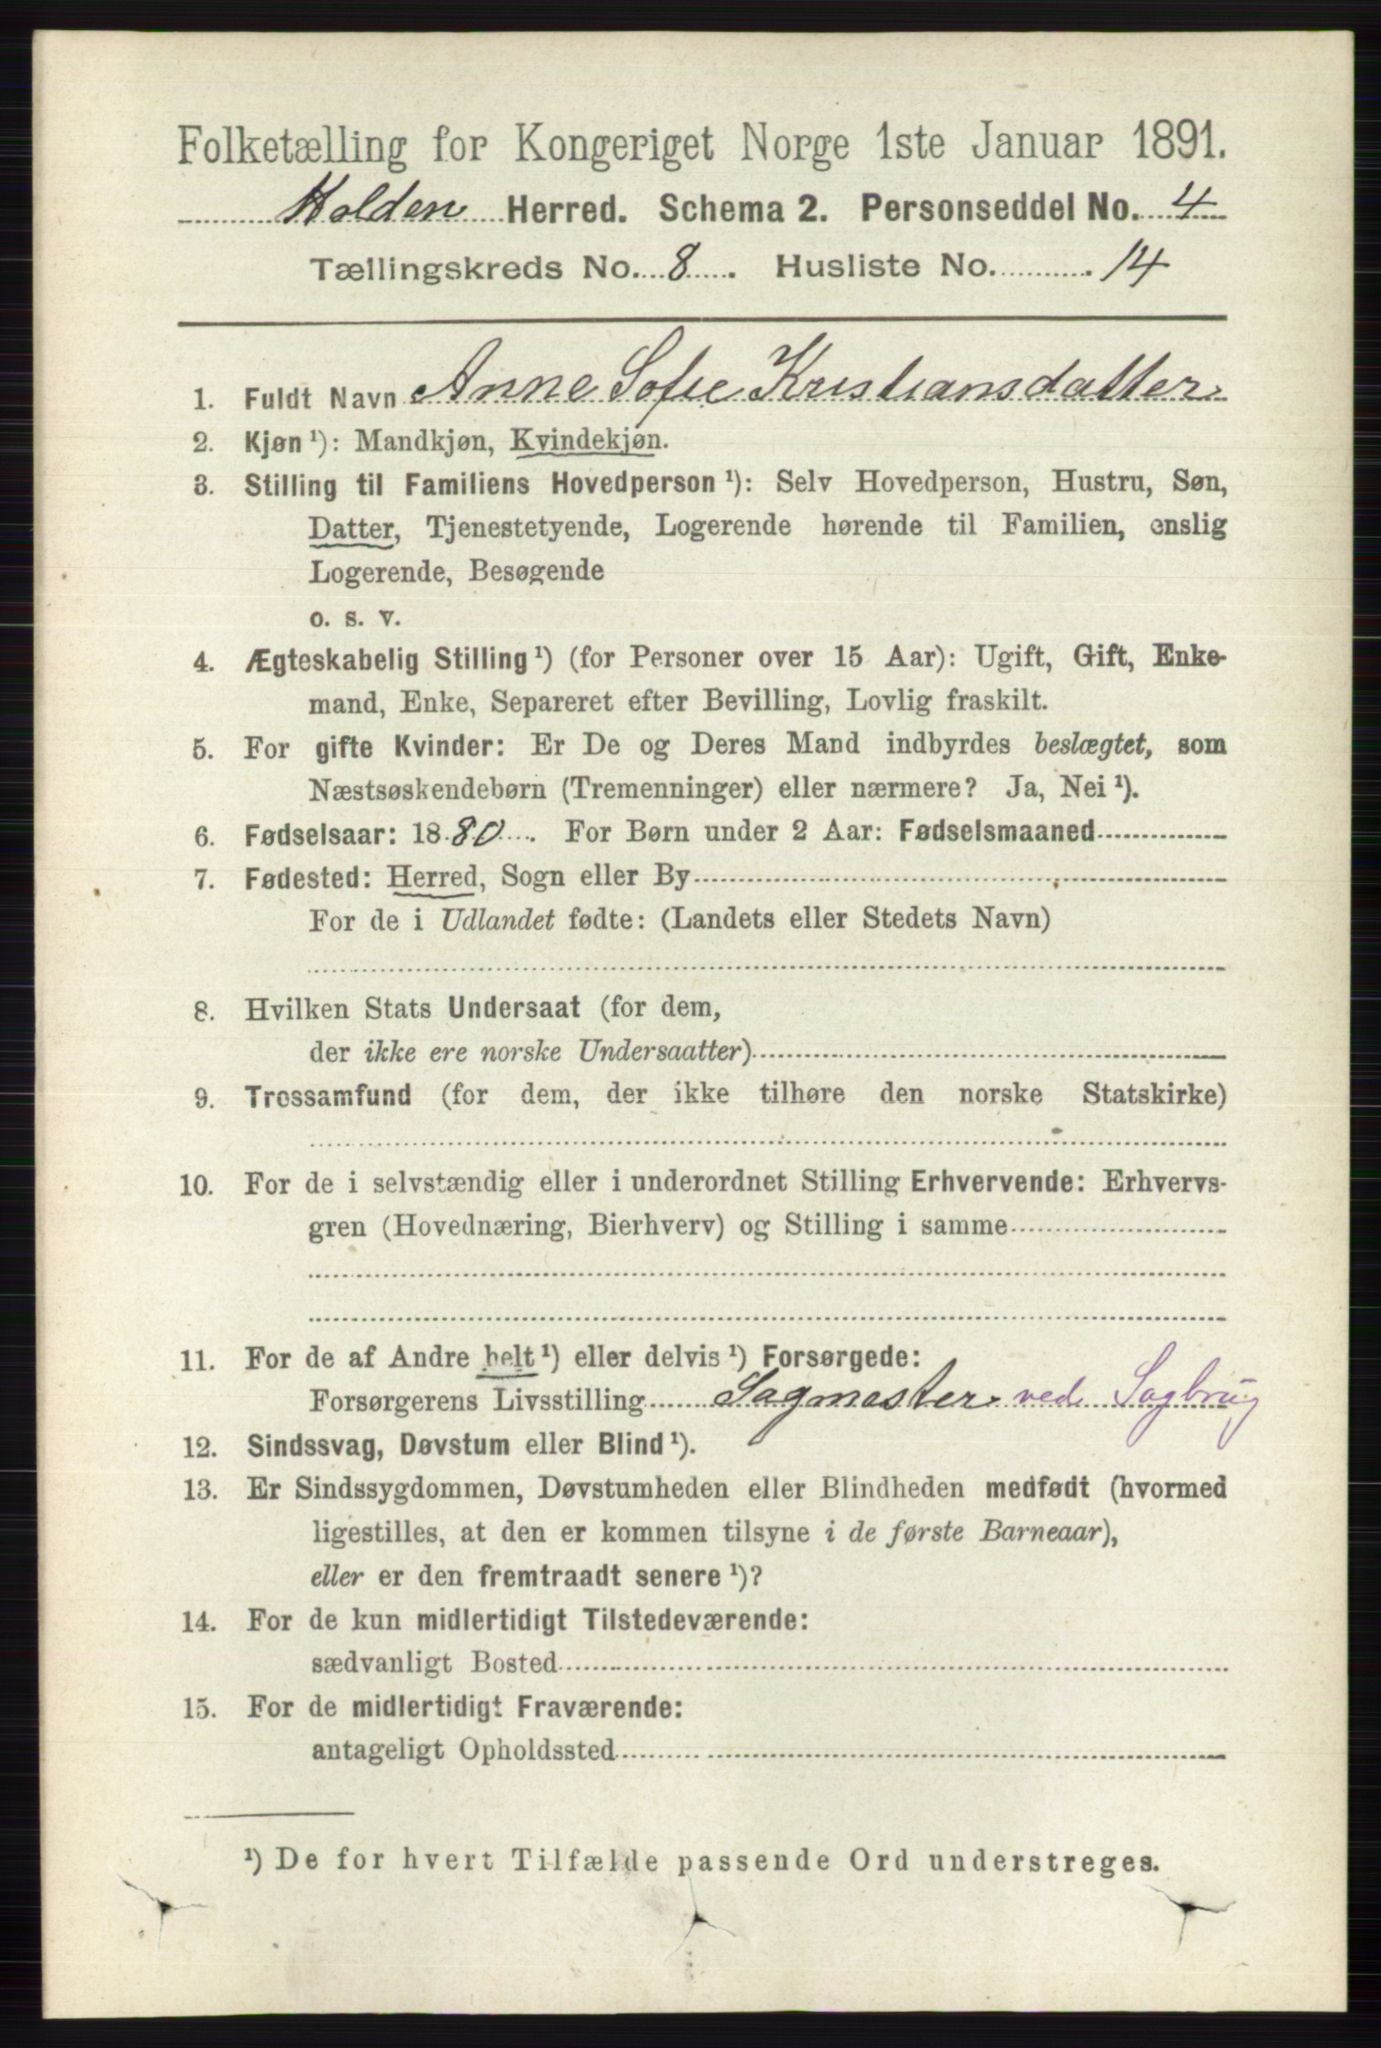 Folketælling for Kongeriget Norge 1ste Januar 1891.
Holden Herred. Schema 2. Personseddel No. 4
Tællingskreds No. 8. Husliste No. 14
1. Fuldt Navn Anne Sofie Kristiansdatter
2. Kjøn ¹): Mandkjøn, Kvindekjøn.
3. Stilling til Familiens Hovedperson ¹): Selv Hovedperson, Hustru, Søn,
Datter, Tjenestetyende, Logerende hørende til Familien, enslig
Logerende, Besøgende
o. s. v.
4. Ægteskabelig Stilling ¹) (for Personer over 15 Aar): Ugift, Gift, Enke-
mand, Enke, Separeret efter Bevilling, Lovlig fraskilt.
5. For gifte Kvinder: Er De og Deres Mand indbyrdes beslægtet, som
Næstsøskendebørn (Tremenninger) eller nærmere? Ja, Nei ¹).
6. Fødselsaar: 1880. For Børn under 2 Aar: Fødselsmaaned
7. Fødested: Herred, Sogn eller By
For de i Udlandet fødte: (Landets eller Stedets Navn)
8. Hvilken Stats Undersaat (for dem,
der ikke ere norske Undersaatter)
9. Trossamfund (for dem, der ikke tilhøre den norske Statskirke)
10. For de i selvstændig eller i underordnet Stilling Erhvervende: Erhvervs-
gren (Hovednæring, Bierhverv) og Stilling i samme
11. For de af Andre helt ¹) eller delvis ¹) Forsørgede:
Forsørgerens Livsstilling Sagmester ved Sagbrug
12. Sindssvag, Døvstum eller Blind ¹).
13. Er Sindssygdommen, Døvstumheden eller Blindheden medfødt (hvormed
ligestilles, at den er kommen tilsyne i de første Barneaar),
eller er den fremtraadt senere ¹)?
14. For de kun midlertidigt Tilstedeværende:
sædvanligt Bosted
15. For de midlertidigt Fraværende:
antageligt Opholdssted
¹) De for hvert Tilfælde passende Ord understreges.